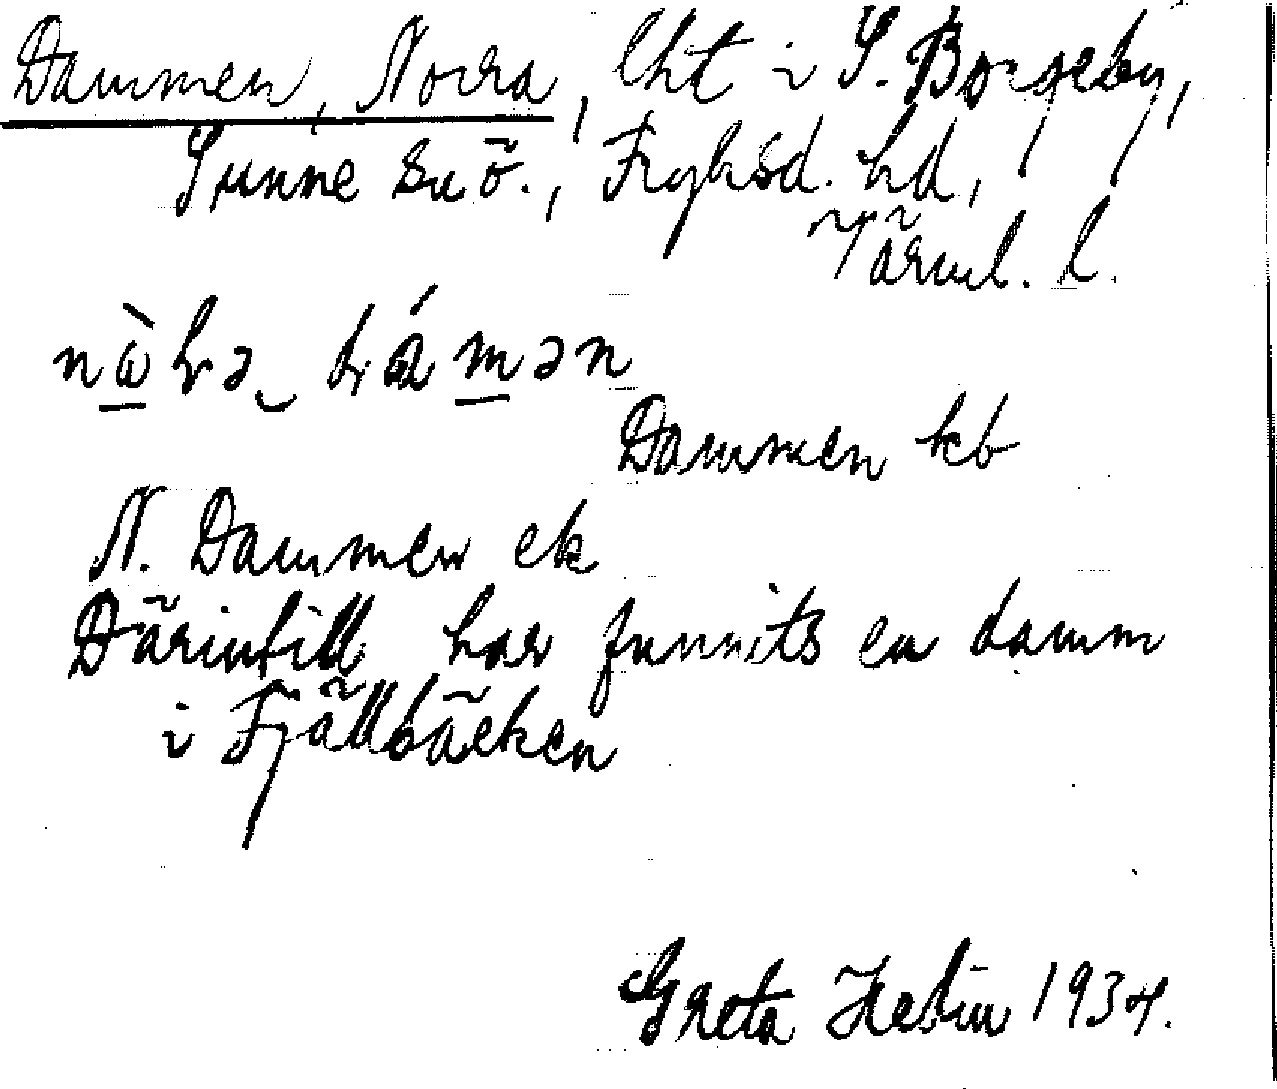 Dammen, Norra, lht i S. Borgeby,
Sunne sn ö., Fryksd. hd,
Värml. l.
Dammen kb
N. Dammen ek
Därintill har funnits en damm
i Fjällbäcken
Greta Hedin 1934.